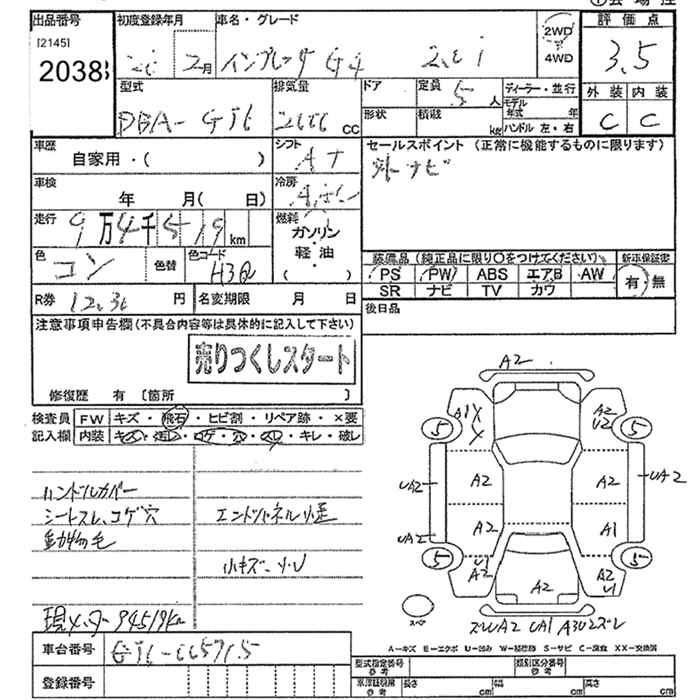 出品番号 初度登録年月 車名・グレード 2WD 評価点
[2145] 2038 2月 インプレッサ G4 2.0i 4WD 3.5
外装 内装
C C
型式 排気量 ドア 定員 5人 ディーラー・並行
DBA- GJ6 2000 CC 形状 積載 kg モデル年式 年
ハンドル 左・右
車歴 自家用・( ) シフト AT セールスポイント (正常に機能するものに限ります)
車検 年 月( 日) 冷房 ナビ
走行 9万4千519 km 燃料 ガソリン・軽油・( )
色 コン 色替 色コード H3Q 装備品 (純正品に限り○をつけてください) 新車保証書
PS PW ABS エアB AW 有・無
SR ナビ TV カワ
R券 円 名変期限 月 日 後日品
注意事項申告欄(不具合内容等は具体的に記入して下さい)
売りつくしスタート
修復歴 有 〔箇所 〕
検査員 FW キズ・飛石・ヒビ割・リペア跡・×要
記入欄 内装 キズ・汚レ・コゲ・穴・スレ・キレ・破レ
ハンドルカバー
シートスレ、コゲ穴 エンドパネル
動物毛
小キズ、
現メーター 94519km
車台番号 GJ6-005715
登録番号
A2
A1 X A2
X U2
5 5
UA2 A2 A2 UA2
UA2 A2 A1
5 U1 5
A2 A2 A2
U1
スペア
A2 UA1
A-キズ E-エクボ U-凹み W-補修跡 S-サビ C-腐食 XX-交換済
型式指定番号 参考 類別区分番号 参考
参考 長さ cm 幅 cm 高さ cm